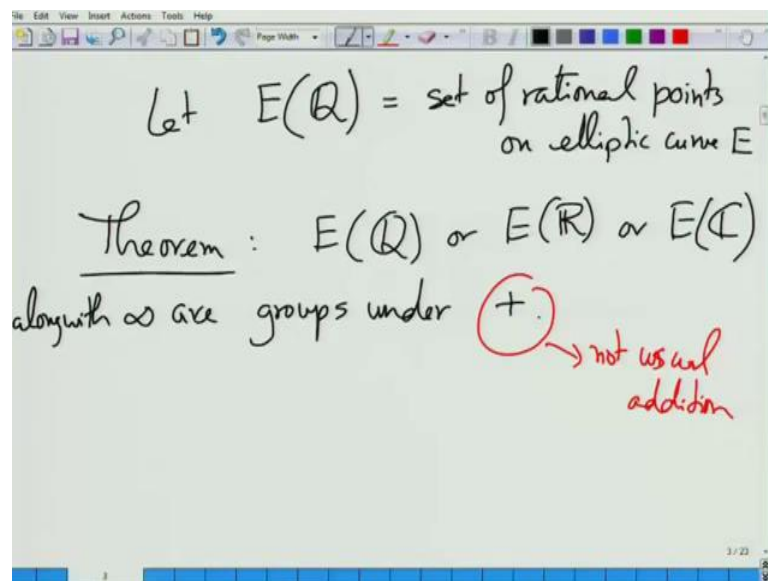 File Edit View Insert Actions Tools Help
Page Width
B I
Let E(ℚ) = set of rational points
on elliptic curve E
Theorem : E(ℚ) or E(ℝ) or E(ℂ)
alongwith ∞ are groups under +.
→ not usual
addition
3/23
3